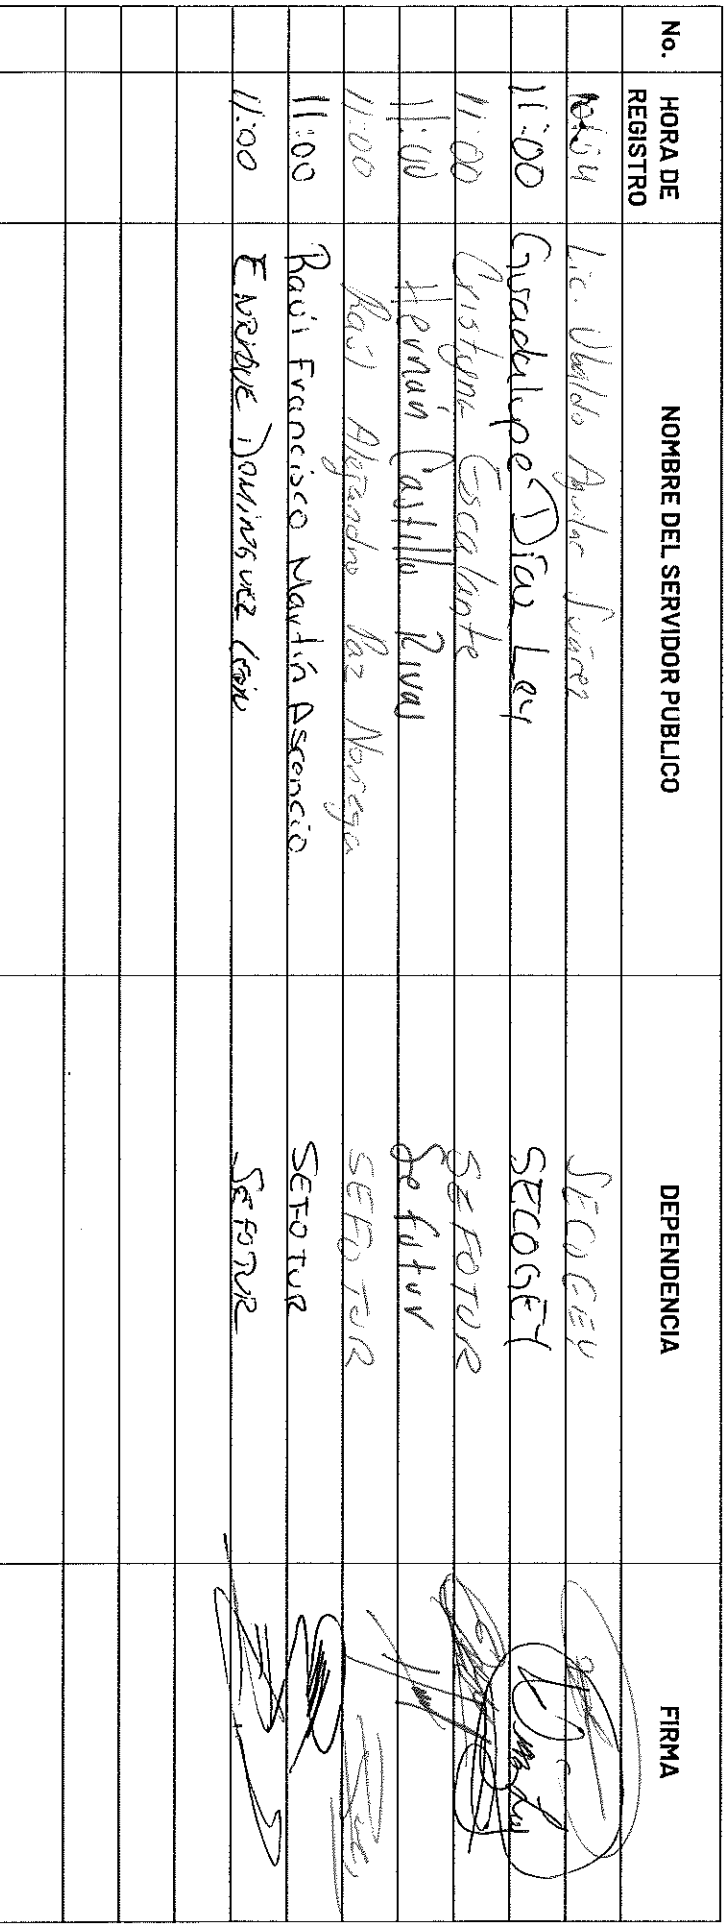 No. HORA DE REGISTRO NOMBRE DEL SERVIDOR PUBLICO DEPENDENCIA FIRMA
10:54 Lic. Ubaldo Aguilar Suárez SECOGEY
11:00 Guadalupe Díaz Ley SECOGEY
11:00 Cristyna Escalante SEFOTUR
11:00 Hernán Castillo Rivas Sefotur
11:00 Raúl Alejandro Paz Noriega SEFOTUR
11:00 Raúl Francisco Martín Ascencio SEFOTUR
11:00 ENRIQUE DOMINGUEZ SEFOTUR